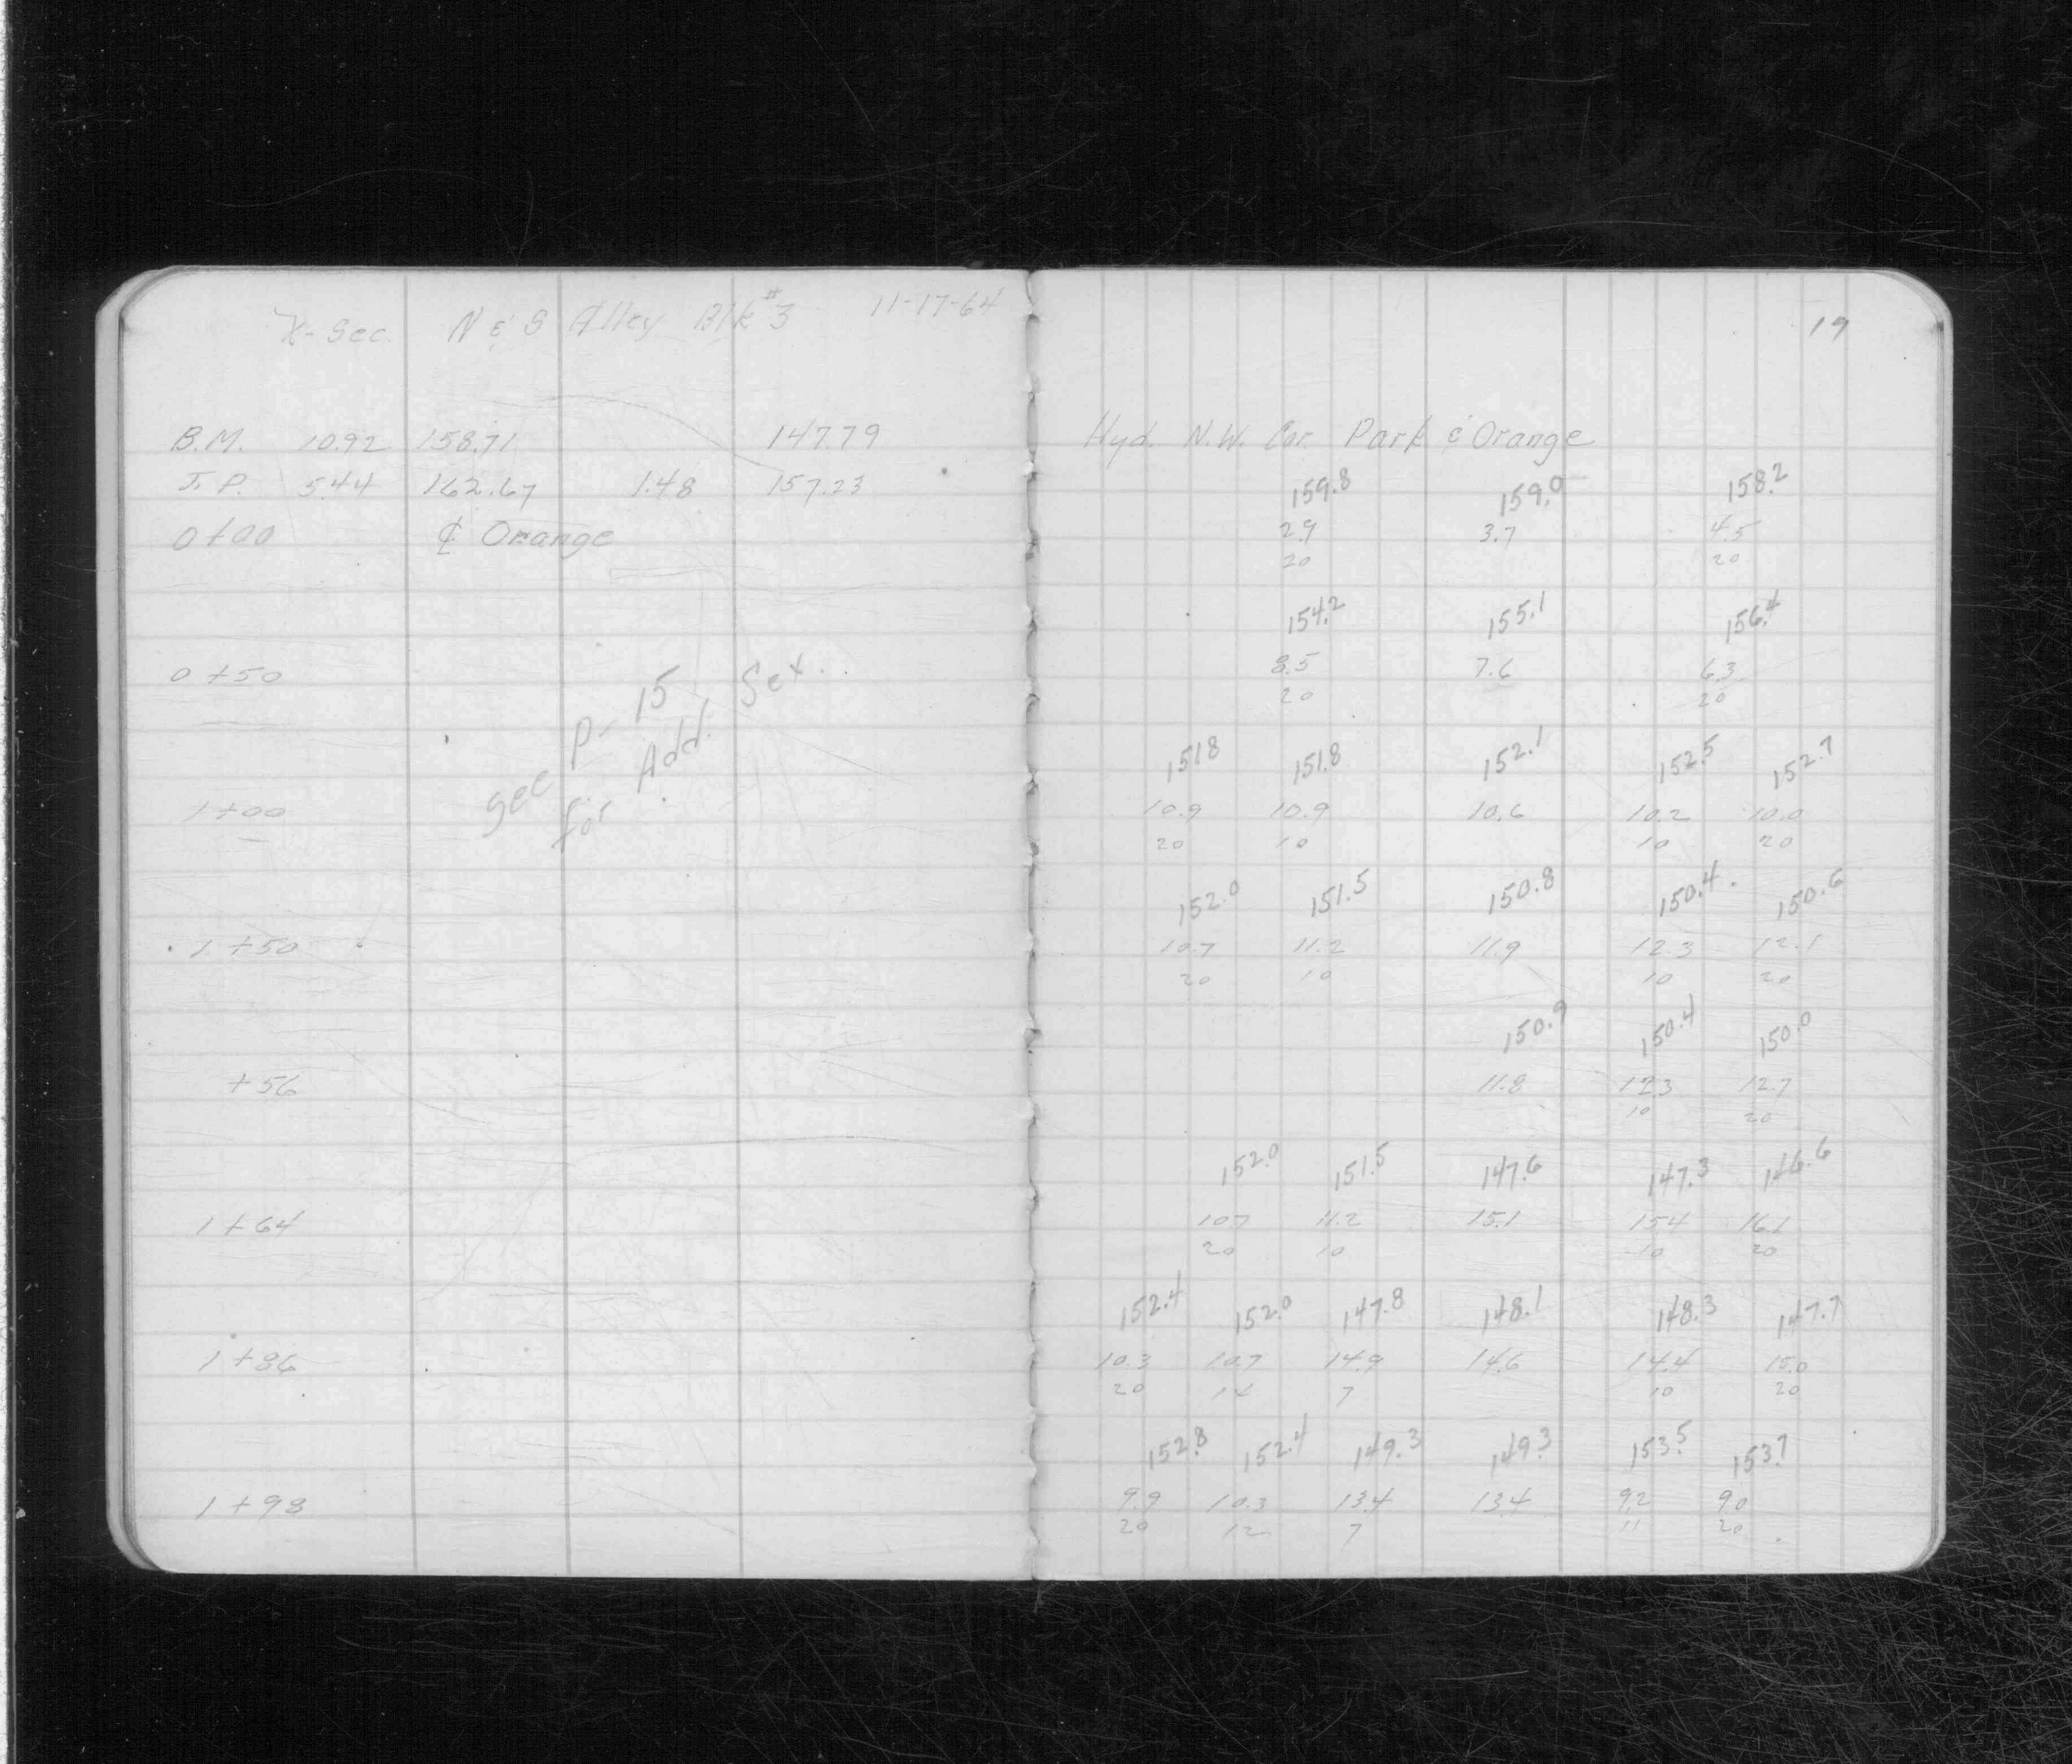 X-Sec. N & S Alley Blk #3 11-17-64
19
B.M. 10.92 158.71 147.79 Hyd. N.W. Cor. Park & Orange
T.P. 5.44 162.67 1.48 157.23
159.8 159.0 158.2
0+00 ₵ Orange 2.9 3.7 4.5
20 20
154.2 155.1 156.4
0+50 8.5 7.6 6.3
20 20
see p. 15
for Add. Sex.
151.8 151.8 152.1 152.5 152.7
1+00 10.9 10.9 10.6 10.2 10.0
20 10 10 20
152.0 151.5 150.8 150.4 150.6
1+50 10.7 11.2 11.9 12.3 12.1
20 10 10 20
150.9 150.4 150.0
+56 11.8 12.3 12.7
10 20
152.0 151.5 147.6 147.3 146.6
1+64 10.7 11.2 15.1 15.4 16.1
20 10 10 20
152.4 152.0 147.8 148.1 148.3 147.7
1+86 10.3 10.7 14.9 14.6 14.4 15.0
20 14 7 10 20
152.8 152.4 149.3 149.3 153.5 153.7
1+98 9.9 10.3 13.4 13.4 9.2 9.0
20 12 7 11 20